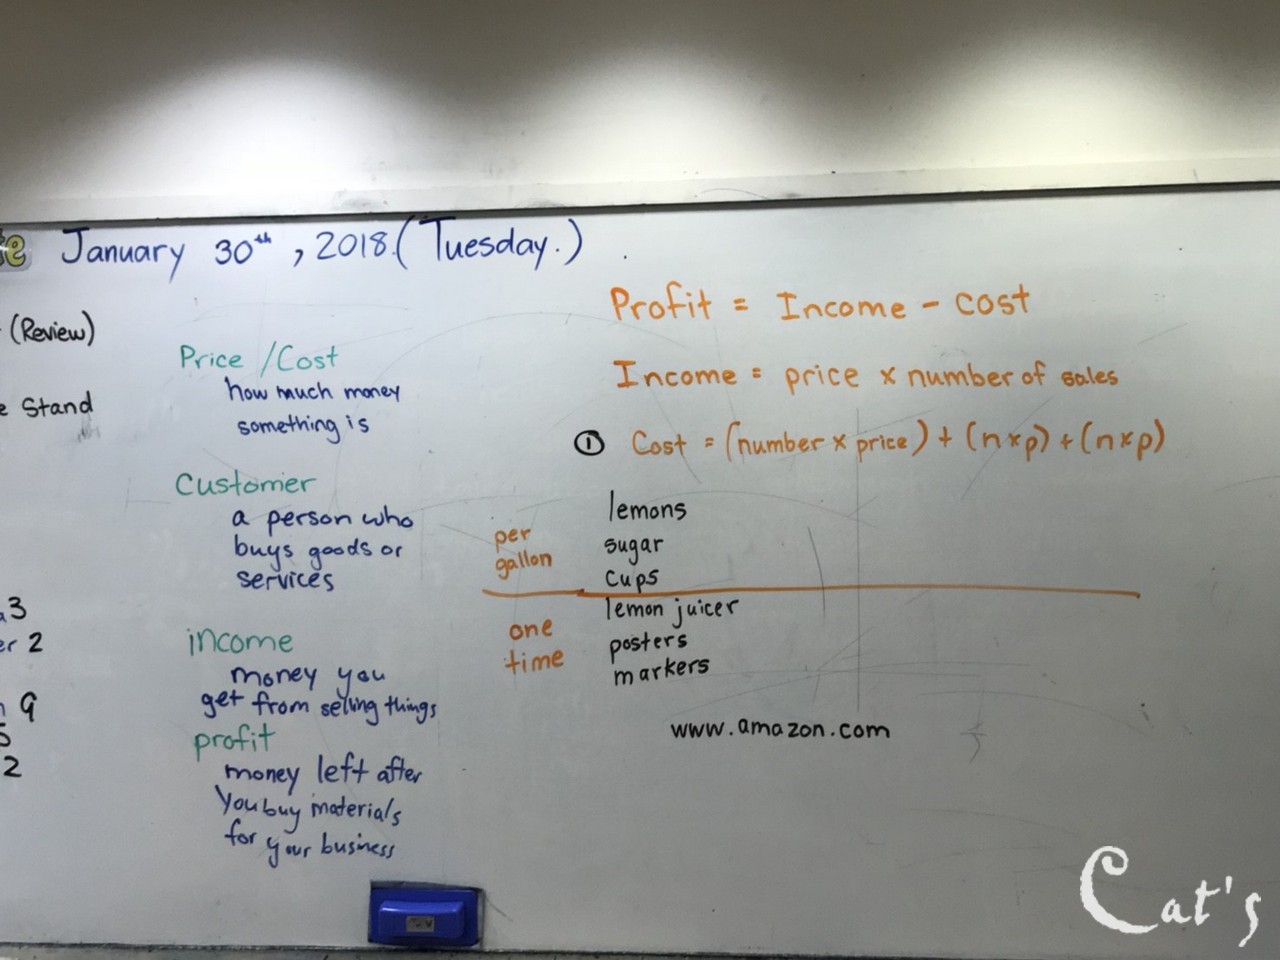 January 30th, 2018. (Tuesday.)
(Review)
Stand
3
2
9
5
2
Price / Cost
how much money
something is
Customer
a person who
buys goods or
services
income
money you
get from selling things
profit
money left after
You buy materials
for your business
Profit = Income - cost
Income = price x number of sales
① Cost = (number x price) + (n x p) + (n x p)
per
gallon
lemons
sugar
cups
one
time
lemon juicer
posters
markers
www.amazon.com
Cat's